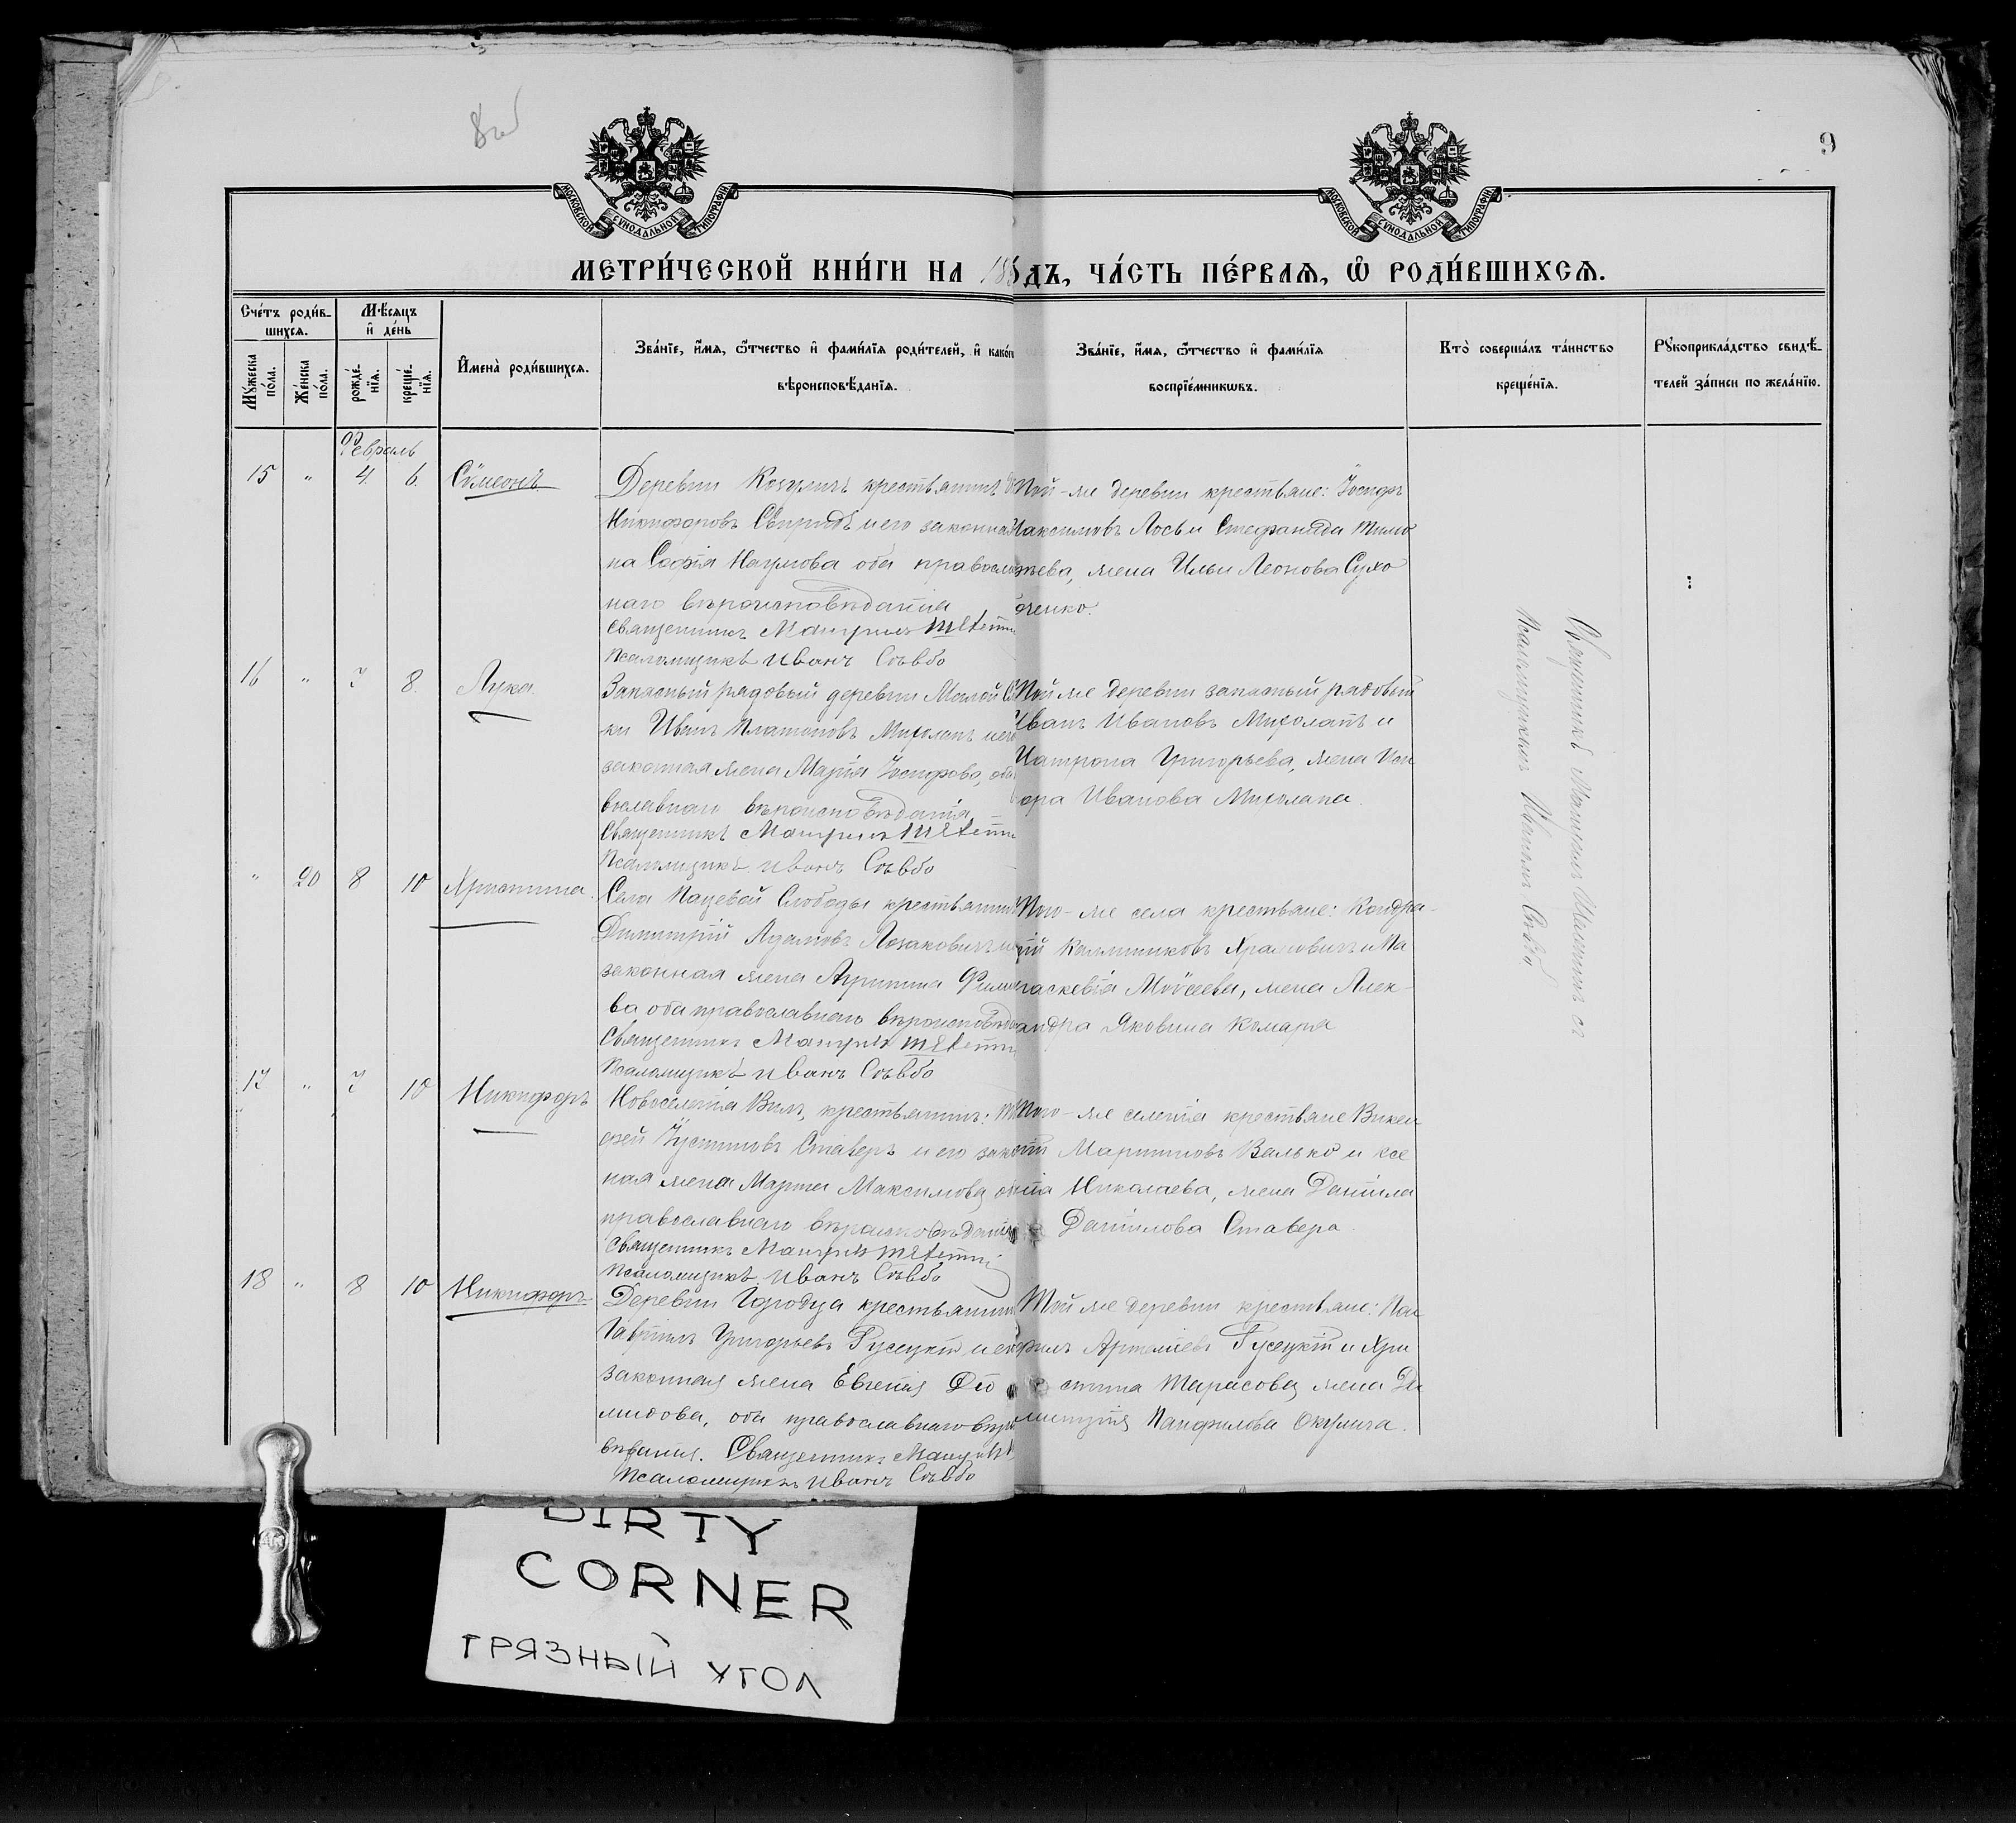 8 об
9
МОСКОВСКОЙ СУНОДАЛЬНОЙ ТИПОГРАФІИ
МОСКОВСКОЙ СУНОДАЛЬНОЙ ТИПОГРАФІИ
МЕТРИ́ЧЕСКОЙ КНИ́ГИ НА 188
ДЪ, ЧА́СТЬ ПЕ́РВАѦ, Ѡ РОДИ́ВШИХСѦ.
Сче́тъ роди́в-
шихсѧ.
Мꙋ́жеска по́ла.
Же́нска по́ла.
Мѣ́сѧцъ
и҆ де́нь
рожде́-
нїѧ.
креще́-
нїѧ.
И҆мена̀ роди́вшихсѧ.
Зва́нїе, и҆́мѧ, ѻ҆́тчество и҆ фами́лїѧ роди́телей, и҆ како́г
вѣроисповѣ́данїѧ.
Зва́нїе, и҆́мѧ, ѻ҆́тчество и҆ фами́лїѧ
воспрїе́мникѡвъ.
Кто̀ соверша́лъ та́инство
креще́нїѧ.
Рꙋкоприкла́дство свидѣ́-
телей за́писи по жела́нїю.
Февраль
15 " 4. 6. Сѵмеонъ
Деревни Козуличъ крестьянинъ
Никифоровъ Свиридъ и его законная
на Софія Наумова оба правосл
наго вѣроисповѣданія
Священникъ
Псаломщикъ Иванъ Съвбо
Той-же деревни крестьяне: Іосифъ
Максимовъ Лось и Стефанида Тимо
ѳеева, жена Ильи Леонова Сухо
ченко.
16 " 7 8. Лука.
Запасный рядовый деревни Малой
ки Иванъ Платоновъ Михолапъ и его
законная жена Марія Іосифова, оба
вославнаго вѣроисповѣданія
Священникъ
Псаломщикъ Иванъ Съвбо
Той же деревни запасный рядовый
Иванъ Ивановъ Михолапъ и
Григорьева, жена
Иванова Михолапа.
" 20 8 10 Христина.
Села Пацевой Слободы крестьянинъ
Димитрій Адамовъ Лозаковичъ и
законная жена Агрипина
ва оба православнаго вѣроисповѣда
Священникъ
Псаломщикъ Иванъ Съвбо
Того-же села крестьяне: Кондра-
тій Каллиниковъ Храмовичъ и Па
раскевія Моѵсеева, жена Алек-
сандра Яковина Комаря
17 " 7 10 Никифоръ
Новоселенія Вилъ, крестьянинъ:
фей Іустиновъ Ставеръ и его закон
ная жена Марѳа Максимова, оба
православнаго вѣроисповѣданія
Священникъ
Псаломщикъ Иванъ Съвбо
Того-же селенія крестьяне Викен
тій Мартиновъ Валько и Ксе
нія Николаева, жена Даніила
Даніилова Ставера.
18 " 8 10 Никифоръ
Деревни Городца крестьянинъ
Гавріилъ Григорьевъ Гусецкій и его
законная жена Евгенія Діо
мидова, оба православнаго вѣро
вѣданія. Священникъ
Псаломщикъ Иванъ Съвбо
Той же деревни крестьяне: Пан
филъ Артеміевъ Гусецкій и Хри
стина Тарасова, жена Ди
митрія Панфилова Окулича.
Священникъ
Псаломщикомъ Иваномъ Съвбо
DIRTY
CORNER
ГРЯЗНЫЙ УГОЛ